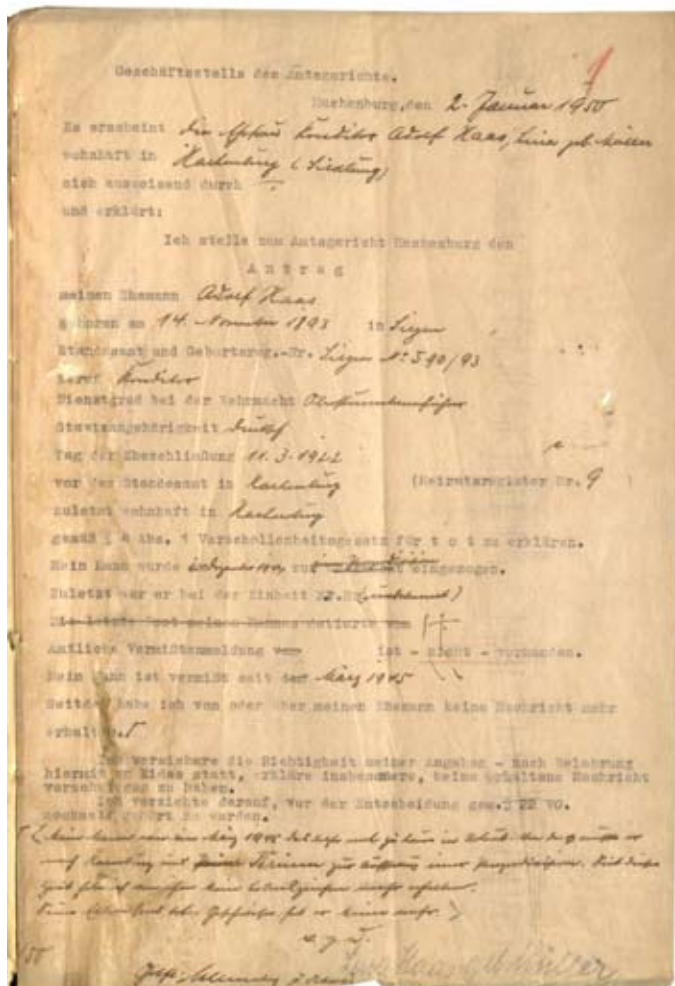 1
Geschäftsstelle des Amtsgerichts.
Hachenburg, den 2. Januar 1950
Es erscheint die Ehefrau Konditor Adolf Haas, Lina geb. Müller
wohnhaft in Hachenburg (Siedlung)
sich ausweisend durch
und erklärt:
Ich stelle zum Amtsgericht Hachenburg den
Antrag
meinen Ehemann Adolf Haas
geboren am 14. November 1893 in Siegen
Standesamt und Geburtsreg.-Nr. Siegen No 590/93
Beruf Konditor
Dienstgrad bei der Wehrmacht Obersturmbannführer
Staatsangehörigkeit deutsch
Tag der Eheschließung 11.3.1922
vor dem Standesamt in Hachenburg (Heiratsregister Nr. 9 )
zuletzt wohnhaft in Hachenburg
gemäß § 4 Abs. 1 Verschollenheitsgesetz für t o t zu erklären.
Mein Mann wurde zur eingezogen.
Zuletzt war er bei der Einheit FP.Nr. (unbekannt)
Die letzte Post meines Mannes datierte vom
Amtliche Vermißtenmeldung vom ist - nicht - vorhanden.
Mein Mann ist vermißt seit dem März 1945
Seitdem habe ich von oder über meinen Ehemann keine Nachricht mehr
erhalten.
Ich versichere die Richtigkeit meiner Angaben - nach Belehrung
hiermit an Eides statt, erkläre insbesondere, keine erhaltene Nachricht
verschwiegen zu haben.
Ich verzichte darauf, vor der Entscheidung gem. § 22 VO.
nochmals gehört zu werden.
Mein Mann war im März 1945 das letzte mal zu Haus in Urlaub. Von da musste er
nach Hamburg mit zur einer Seit dieser
Zeit habe ich von ihm kein Lebenszeichen mehr erhalten.
hat er keine mehr.
v. g. u.
Lina Haas geb Müller
/50